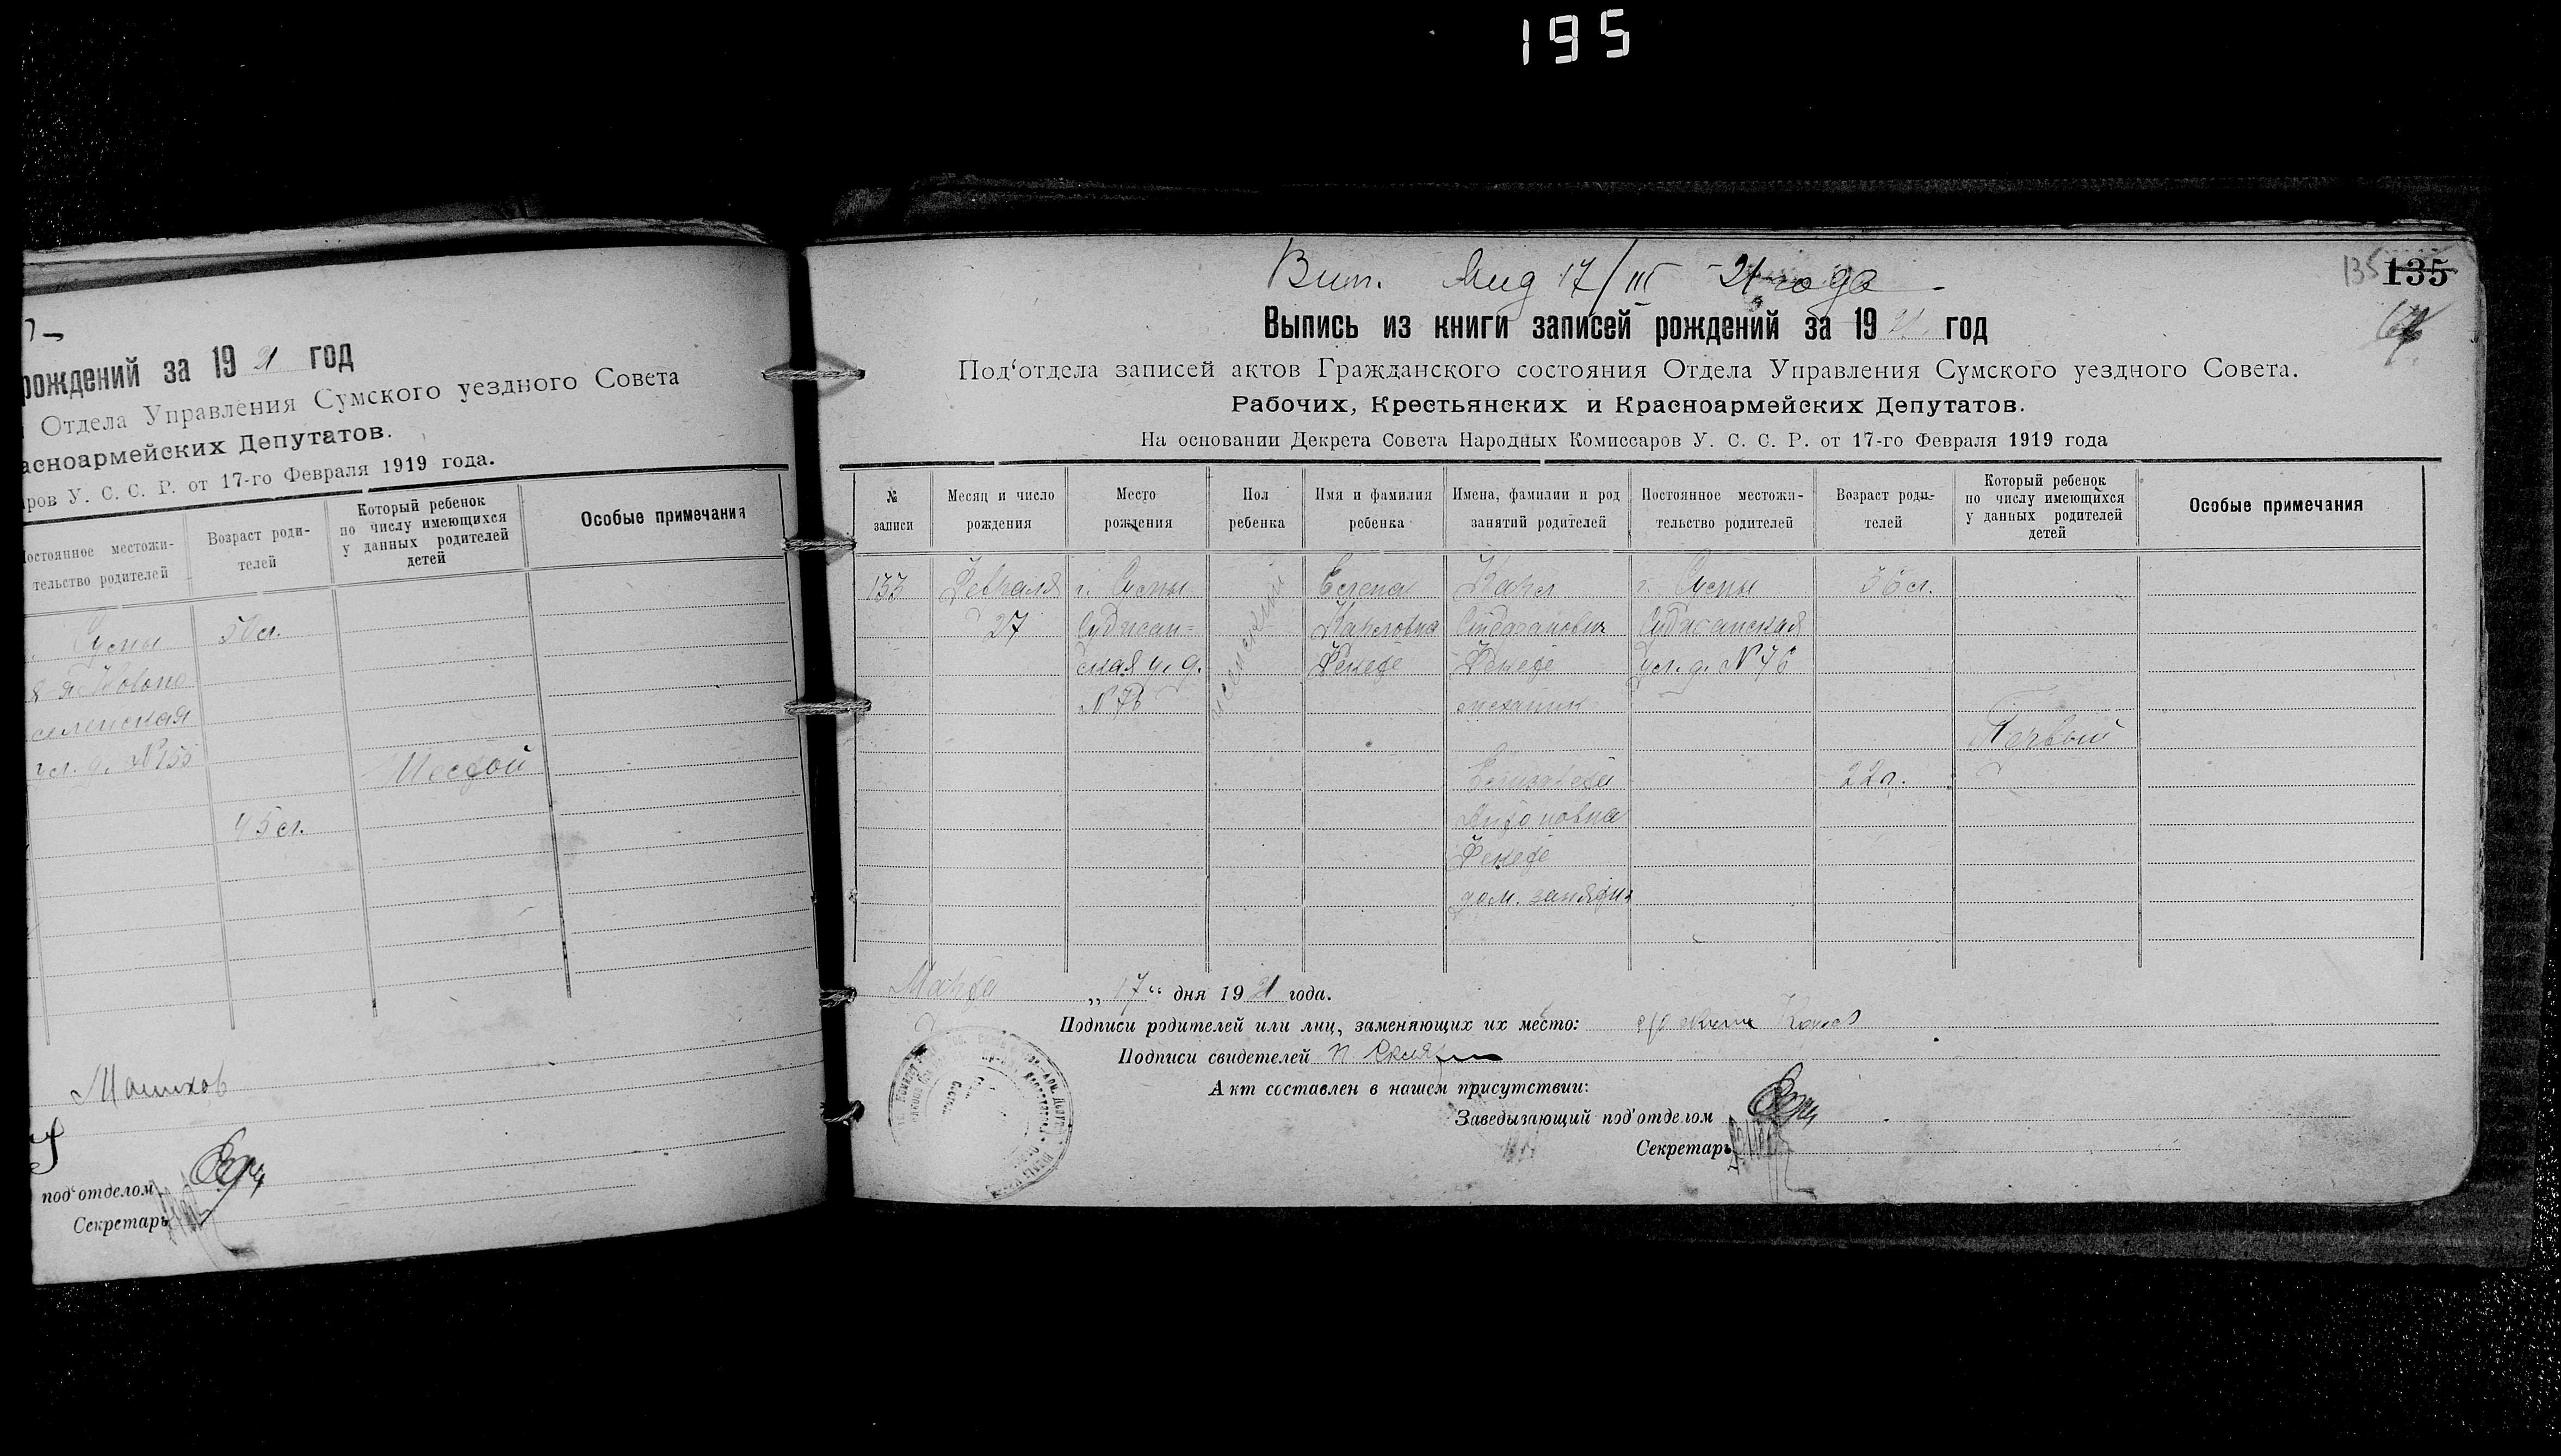 195
рождений за 1921 год
Отдела Управления Сумского уездного Совета
асноармейских Депутатов.
аров У. С. С. Р. от 17-го Февраля 1919 года.
остоянное местожи-
тельство родителей
Возраст роди-
телей
Который ребенок
по числу имеющихся
у данных родителей
детей
Особые примечания
Сумы
50 л.
Ново
селенская
ул. д. №155
Шестой
45 л.
Машков
под'отделом
Секретарь
Вып. Выд 17/III - 21 года -
135
135
Выпись из книги записей рождений за 1921 год
Под'отдела записей актов Гражданского состояния Отдела Управления Сумского уездного Совета.
Рабочих, Крестьянских и Красноармейских Депутатов.
На основании Декрета Совета Народных Комиссаров У. С. С. Р. от 17-го Февраля 1919 года
№
записи
Месяц и число
рождения
Место
рождения
Пол
ребенка
Имя и фамилия
ребенка
Имена, фамилии и род
занятий родителей
Постоянное местожи-
тельство родителей
Возраст роди-
телей
Который ребенок
по числу имеющихся
у данных родителей
детей
Особые примечания
133
Февраля
27
г. Сумы
Суджан-
ская у. д.
№ 76
женский
Елена
Карловна
Фекете
Карл
Стефанович
Фекете
механик
г. Сумы
Суджанская
ул. д. № 76
36 л.
Первый
Елизавета
Антоновна
Фекете
дом. занятия
22 г.
Марта „17“ дня 1921 года.
Подписи родителей или лиц, заменяющих их место:
Подписи свидетелей
Акт составлен в нашем присутствии:
Заведывающий под'отделом
Секретарь